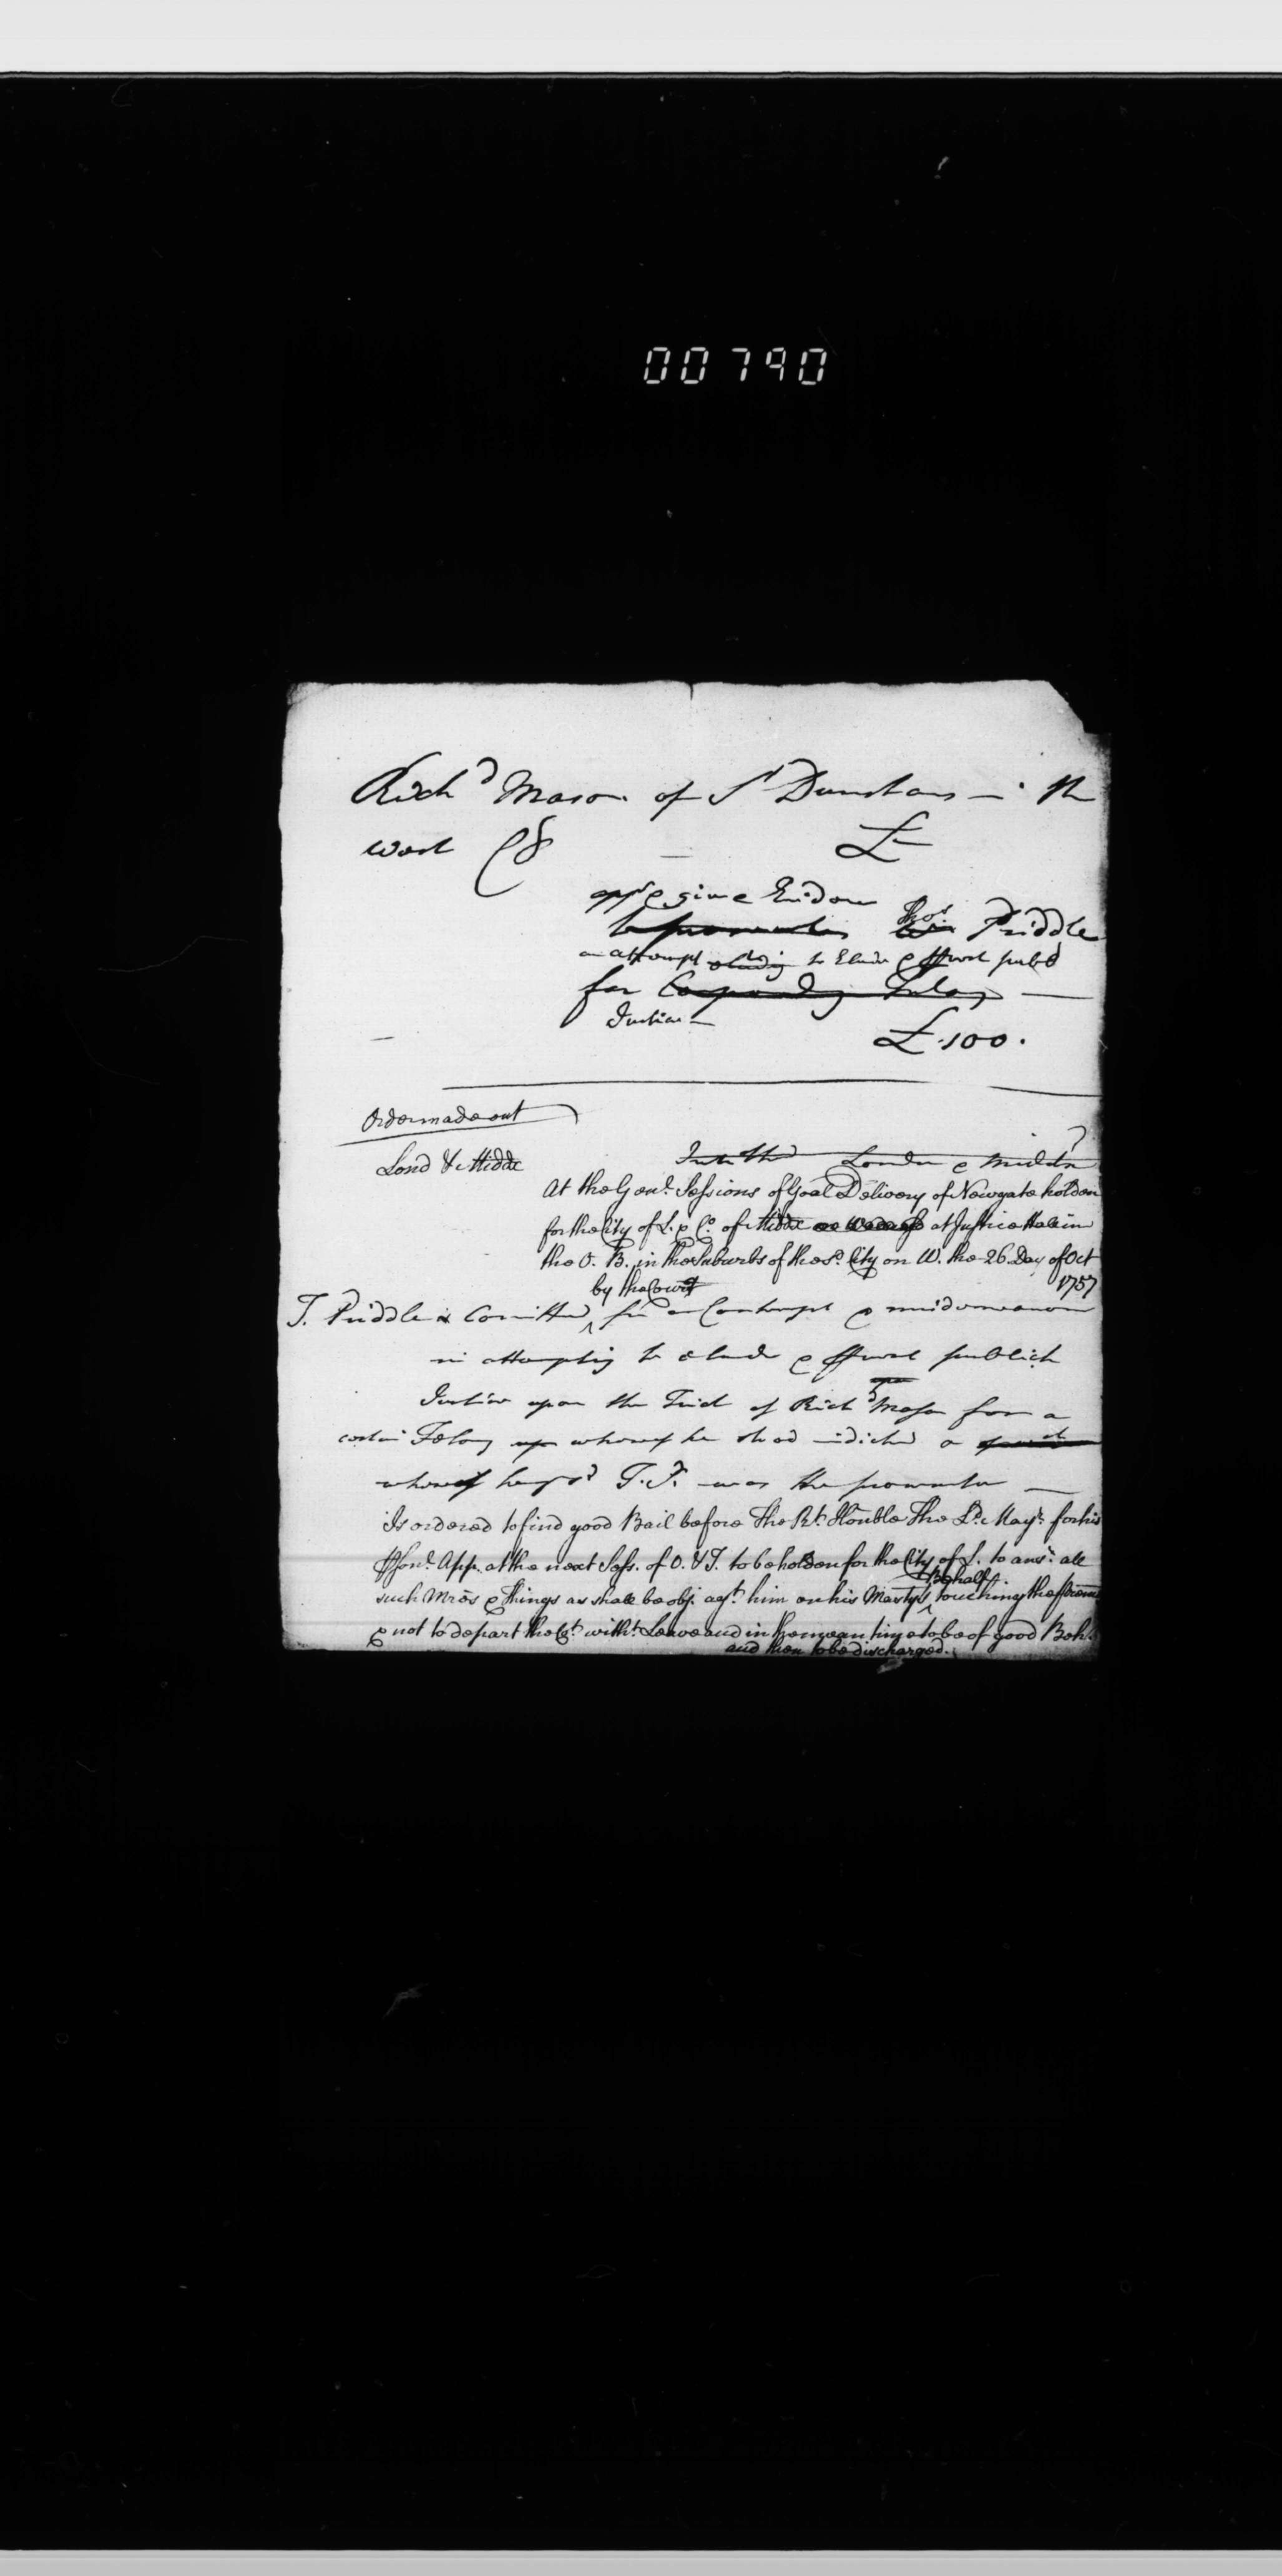 00790
Richd Mason of St Dunstans in the
West
£
appr & give Evidence
to prosecute Thos Priddle
an attempt to Elude & ffrust pub
for Compounding Felony
Justice
£.100.
Order made out
Lond & Middx London & Middx
At the Genl. Sessions of Goal Delivery of Newgate holden
for the City of L. & Co. of Middx at Justice Hall in
the O. B. in the Suburbs of the sd. City on W. the 26 Day of Oct
by the Court 1757
T. Priddle Comitted for a Contempt & misdemeanour
in attempting to elude & publick
Justice upon the Trial of Richd Mason for a
certain Felony whereof he stood indicted
whereof he ye sd T. P. was the prosecutor
Is ordered to find good Bail before The Rt. Honble The Ld. Mayr. for his
App. at the next Sess. of O. & T. to be holden for the City of L. to ansr. all
Behalf
such Mrs & things as shall be obj. agt. him on his Majtys touching the
& not to depart the Ct. witht. Leave and in the mean time to be of good Beh.
and then to be discharged.